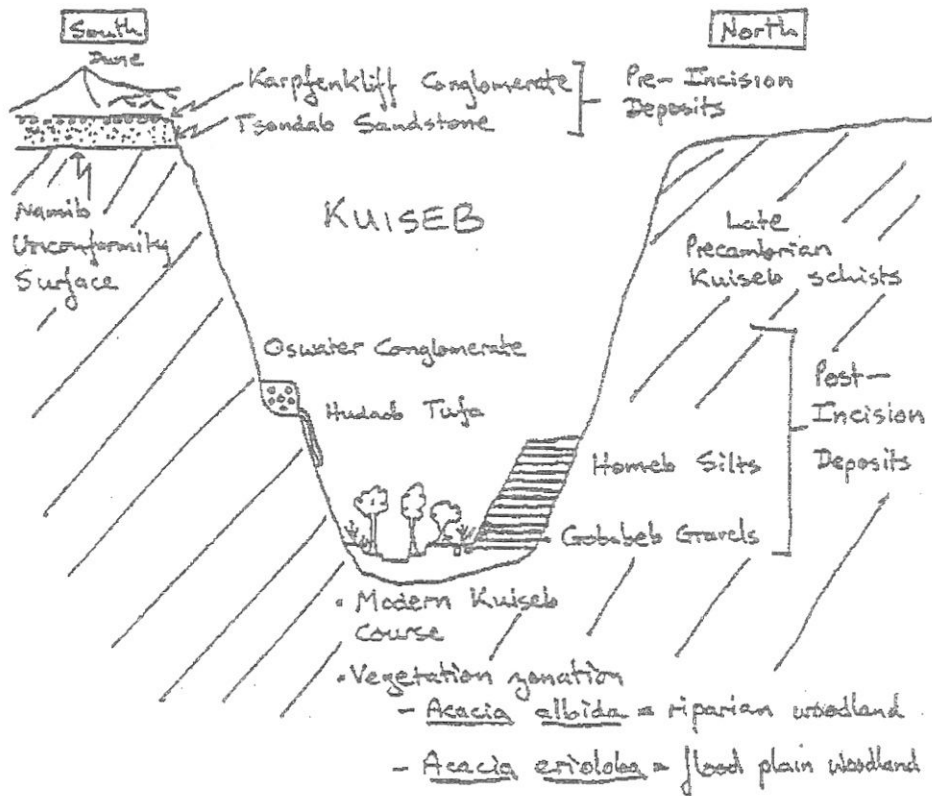 South
North
Dune
Karpfenkliff Conglomerate
Tsondab Sandstone
Pre-Incision
Deposits
Namib
Unconformity
Surface
KUISEB
Late
Precambrian
Kuiseb schists
Oswater Conglomerate
Hudaob Tufa
Homeb Silts
Gobabeb Gravels
Post-
Incision
Deposits
• Modern Kuiseb
Course
• Vegetation zonation
- Acacia albida = riparian woodland
- Acacia erioloba = flood plain woodland